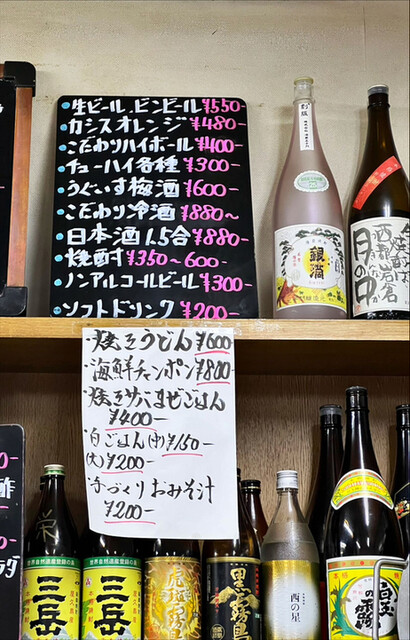 生ビール、ビンビール ¥550-
カシスオレンジ ¥480-
こだわりハイボール ¥400-
チューハイ各種 ¥300-
うぐいす梅酒 ¥600-
こだわり冷酒 ¥880~
日本酒1.5合 ¥880-
焼酎 ¥350~600-
ノンアルコールビール ¥300-
ソフトドリンク ¥200-
・焼きうどん ¥600
・海鮮チャンポン ¥800-
・焼きサバまぜごはん
¥400-
・白ごはん(中)¥150-
(大)¥200-
・手づくりおみそ汁
¥200-
銀滴
月の中
三岳
三岳
黒霧島
西の星
白玉
の露